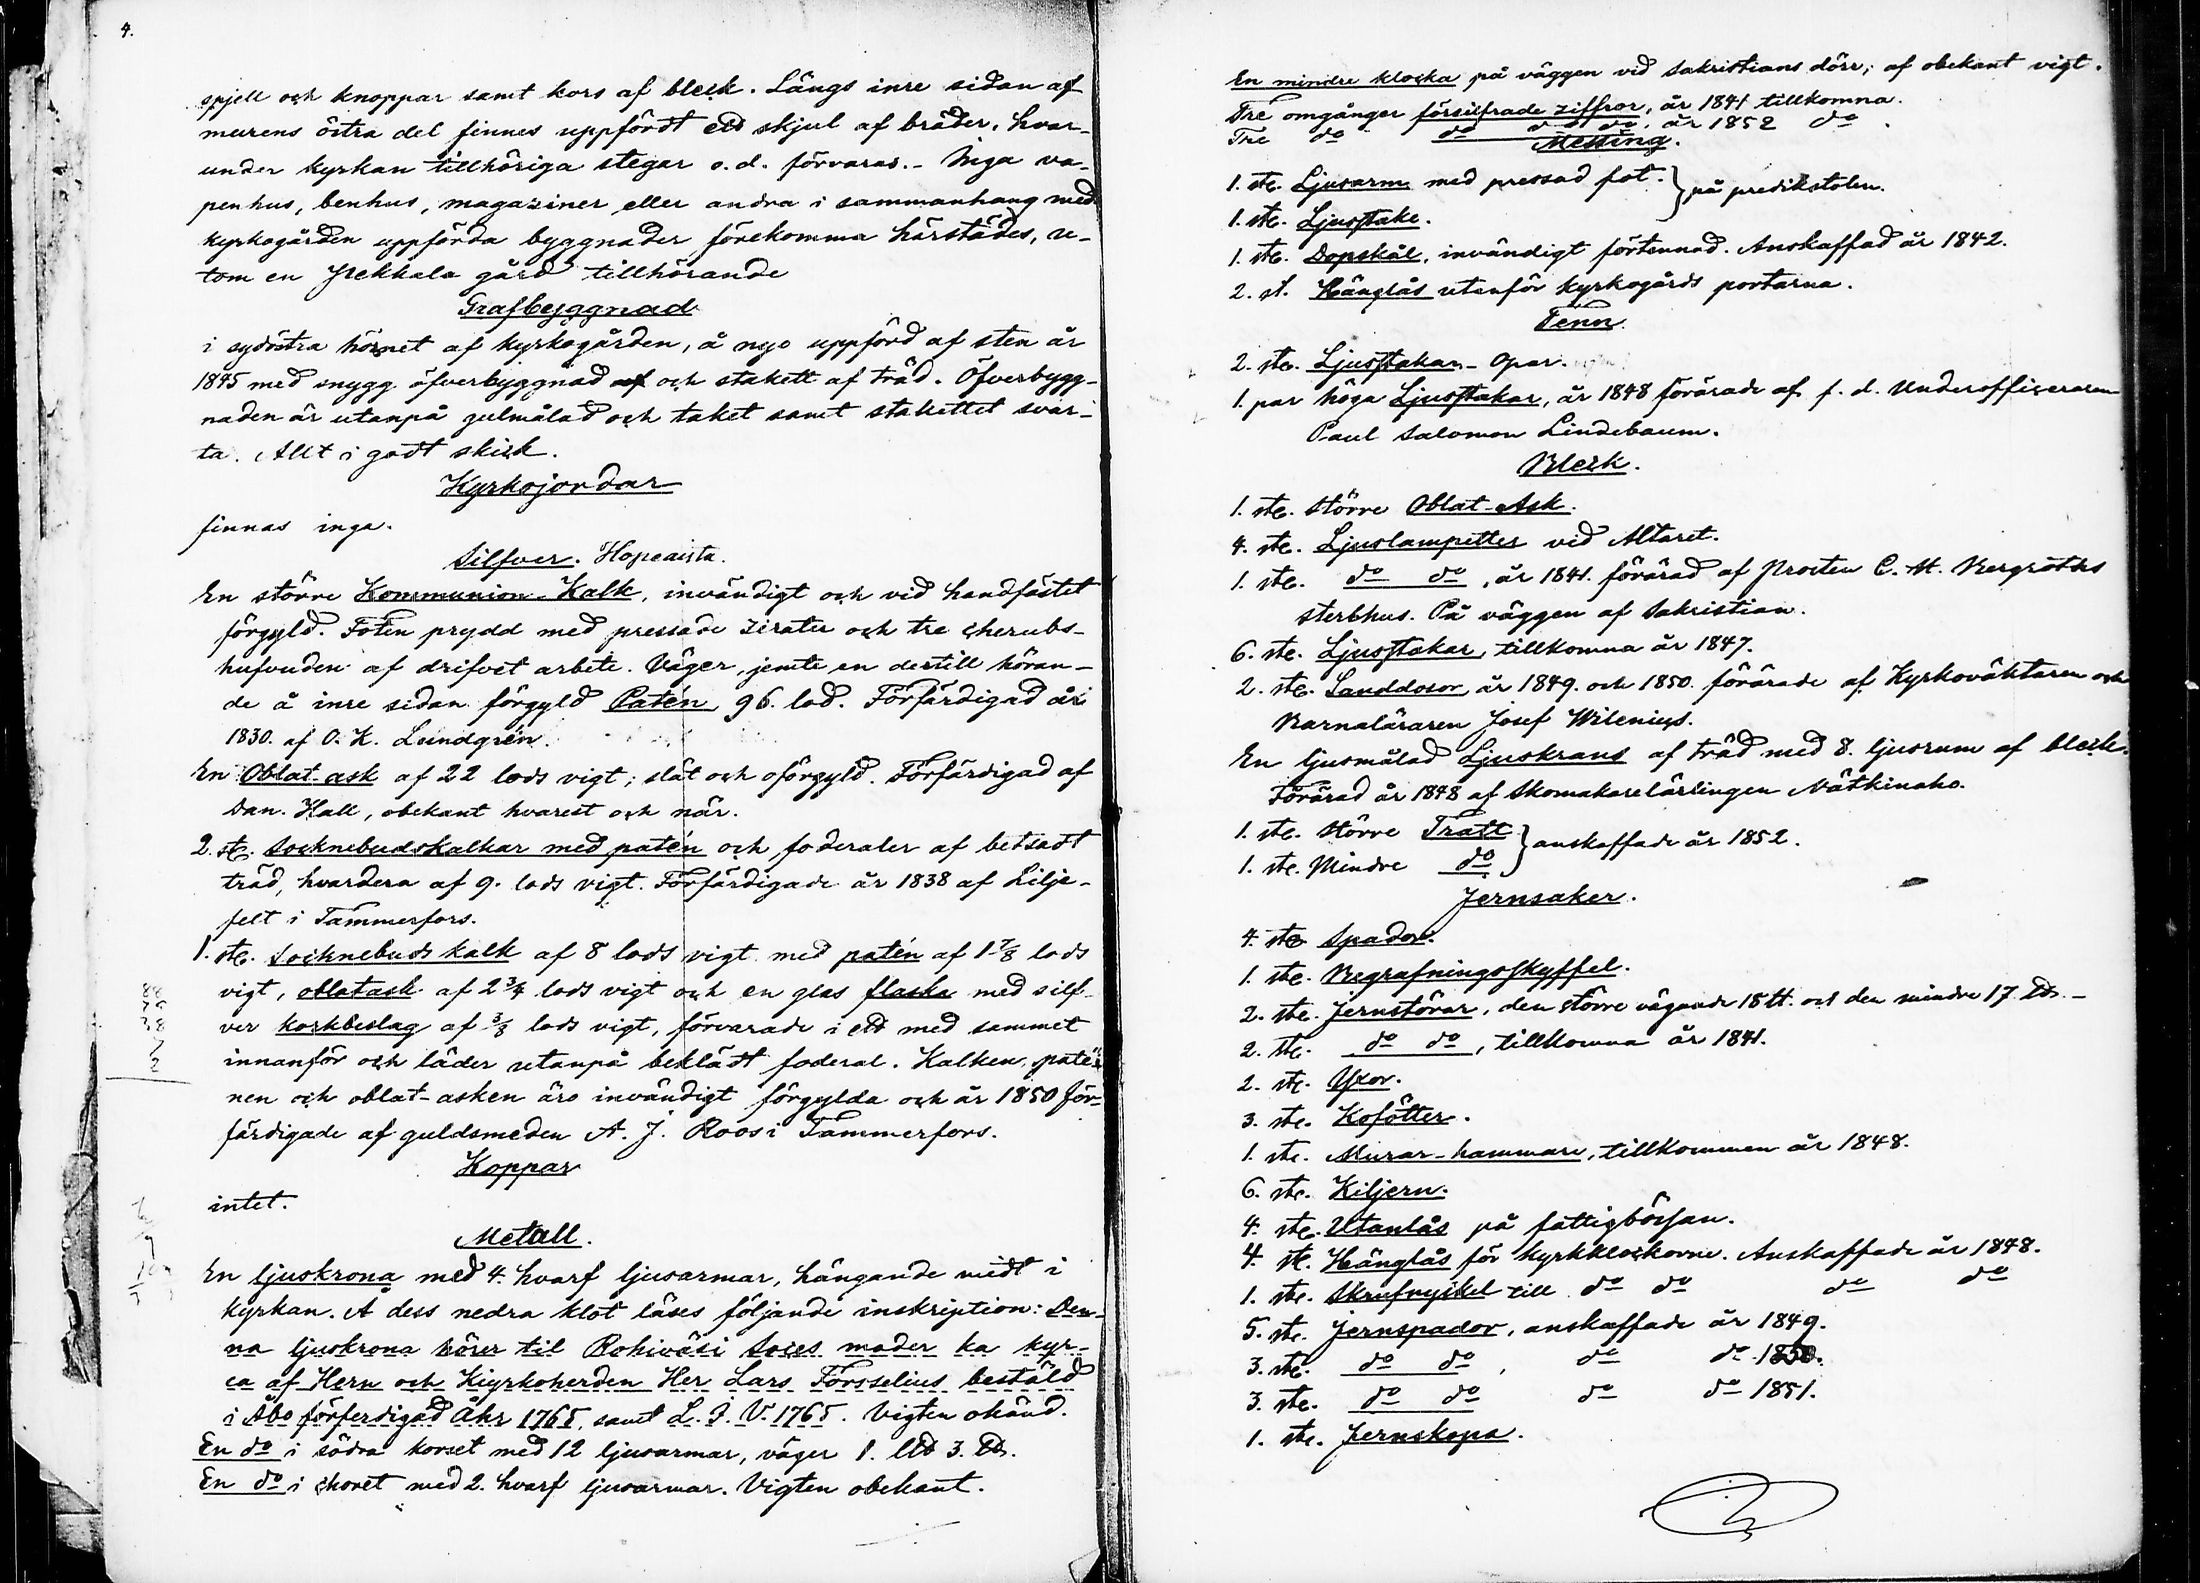 4.
spjell och knoppar samt kors af bleck. Längs inre sidan af
murens östra del finnes uppfördt ett skjul af bräder, hvar-
under kyrkan tillhöriga stegar o.d. förvaras. - Inga va-
penhus, benhus, magaziner eller andra i sammanhang med
kyrkogården uppförda byggnader förekomma härstädes, u-
tom en Jsekkala gård tillhörande
Grafbyggnad
i sydöstra hörnet af kyrkogården, å nyo uppförd af sten år
1845 med snygg öfverbyggnad och stakett af träd. Öfverbygg-
naden är utanpå gulmålad och taket samt stakettet svar-
ta. Allt i godt skick.
Kyrkojordar
finnas inga.
Silfver. Hopeaista.
En större Kommunion-Kalk, invändigt och vid handfästet
förgyld. Foten prydd med pressade zirater och tre cherubs-
hufvuden af drifvet arbete. Väger, jemte en dertill höran-
de å inre sidan förgyld Patén, 96. lod. Förfärdigad år
1830. af O. K. Lundgrén.
En Oblat-ask af 22 lods vigt; slät och oförgyld. Förfärdigad af
Dan. Hall, obekant hvarest och när.
2. st. Socknebudskalkar med patén och foderaler af betsadt
träd, hvardera af 9. lods vigt. Förfärdigade år 1838 af Lilje-
felt i Tammerfors.
1. st. Socknebuds kalk af 8 lods vigt med patén af 1 7/8 lods
vigt, oblatask af 2 3/4 lods vigt och en glas flaska med silf-
ver korkbeslag af 3/8 lods vigt, förvarade i ett med sammet
innanför och läder utanpå beklädt foderal. Kalken, paté-
nen och oblat-asken äro invändigt förgylda och år 1850 för-
färdigade af guldsmeden A. J. Roos i Tammerfors.
Koppar
intet.
Metall.
En ljuskrona med 4. hvarf ljusarmar, hängande midt i
kyrkan. Å dess nedra klot läses följande inskription: Den-
na ljuskrona hörer til Rohiväsi Soces moder ka kyr-
ca af Hern och Kiyrkoherden Her Lars Forsselius bestäld
i Åbo förferdigad Åhr 1765, samt L. I. V. 1765. Vigten okänd.
En do i södra korset med 12 ljusarmar, väger 1. l℔ 3. ℔.
En do i choret med 2. hvarf ljusarmar. Vigten obekant.
En mindre klocka på väggen vid Sakristians dörr; af obekant vigt.
Tre omgånger försilfrade ziffror, år 1841 tillkomna.
Tre do do do do, år 1852 do.
Messing.
1. st. Ljusarm med pressad fot. } på predikstolen.
1. st. Ljusstake.
1. st. Dopskål, invändigt förtennad. Anskaffad år 1842.
2. st. Hänglås utanför kyrkogårds portarna.
Tenn
2. st. Ljusstakar - Opar.
1. par höga Ljusstakar, år 1848 förärade af f. d. Underofficeraren
Paul Salomon Lindebaum.
Bleck.
1. st. större Oblat-Ask.
4. st. Ljuslampetter vid Altaret.
1. st. do do, år 1841. förärad af Prosten C. M. Bergroths
sterbhus. På väggen af Sakristian.
6. st. Ljusstakar, tillkomna år 1847.
2. st. Sanddosor år 1849. och 1850. förärade af Kyrkoväktaren och
Barnaläraren Josef Wilenius.
En ljusmålad Ljuskrans af träd med 8. ljusrum af bleck.
Förärad år 1848 af Skomakarelärlingen Nätkinaho.
1. st. större Tratt } anskaffade år 1852.
1. st. Mindre do
Jernsaker.
4. st. Spador.
1. st. Begrafningsskyffel.
2. st. Jernstörar, den större vägande 18 ℔. och den mindre 17 ℔. -
2. st. do do, tillkomna år 1841.
2. st. Yxor.
3. st. Kofötter.
1. st. Murar-hammare, tillkommen år 1848.
6. st. Kiljern.
4. st. Utanlås på fattigbössan.
4. st. Hänglås för kyrkklockorne. Anskaffade år 1848.
1. st. Skrufnyckel till do do do do
5. st. Jernspador, anskaffade år 1849.
3. st. do do, do do 1850.
3. st. do do do do 1851.
1. st. Jernskopa.